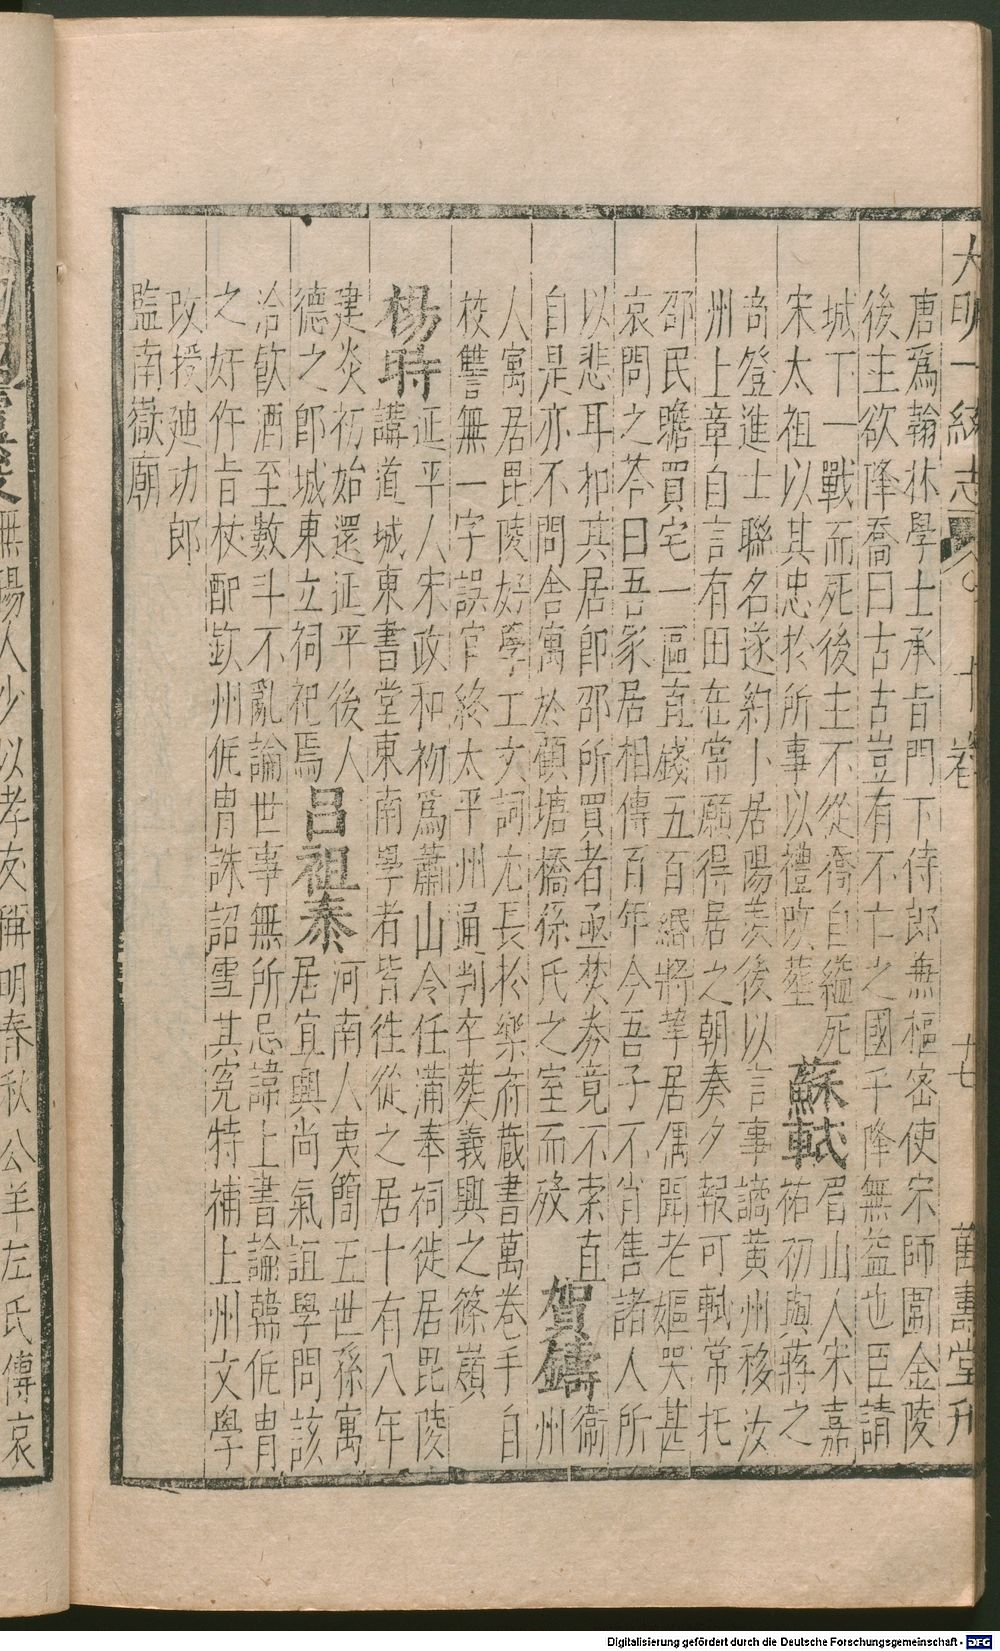 大明一統志 十卷 十七 萬壽堂刋
唐爲翰林學士承旨門下侍郎無樞密使宋師圍金陵
後主欲降喬曰古古豈有不亡之國乎降無益也臣請
城下一戰而死後主不從喬自縊死
宋太祖以其忠於所事以禮改塟
蘇軾
眉山人宋嘉
祐初與蔣之
奇登進士聯名遂約卜居陽羨後以言事謫黄州移汝
州上章自言有田在常願得居之朝奏夕報可軾常托
邵民瞻買宅一區直錢五百緡將挈居偶聞老嫗哭甚
哀問之荅曰吾家居相傳百年今吾子不肖售諸人所
以悲耳扣其居即邵所買者亟焚券竟不索直
自是亦不問舍寓於顧塘橋孫氏之室而殁
賀鑄
衞
州
人寓居毘陵好學工文詞尤長於樂府藏書萬卷手自
校讐無一字誤官終太平州通判卒葬義興之篠嶺
楊時
延平人宋政和初爲蕭山令任滿奉祠徙居毘陵
講道城東書堂東南學者皆徃從之居十有八年
建炎初始還延平後人
德之即城東立祠祀焉
呂祖泰
河南人夷簡五世孫寓
居宜興尚氣誼學問該
洽飲酒至數斗不亂論世事無所忌諱上書論韓侂冑
之奸忤旨杖配欽州侂冑誅詔雪其冤特補上州文學
改授廸功郎
監南嶽廟
無錫人少以孝友稱明春秋公羊左氏傳哀
Digitalisierung gefördert durch die Deutsche Forschungsgemeinschaft - DFG